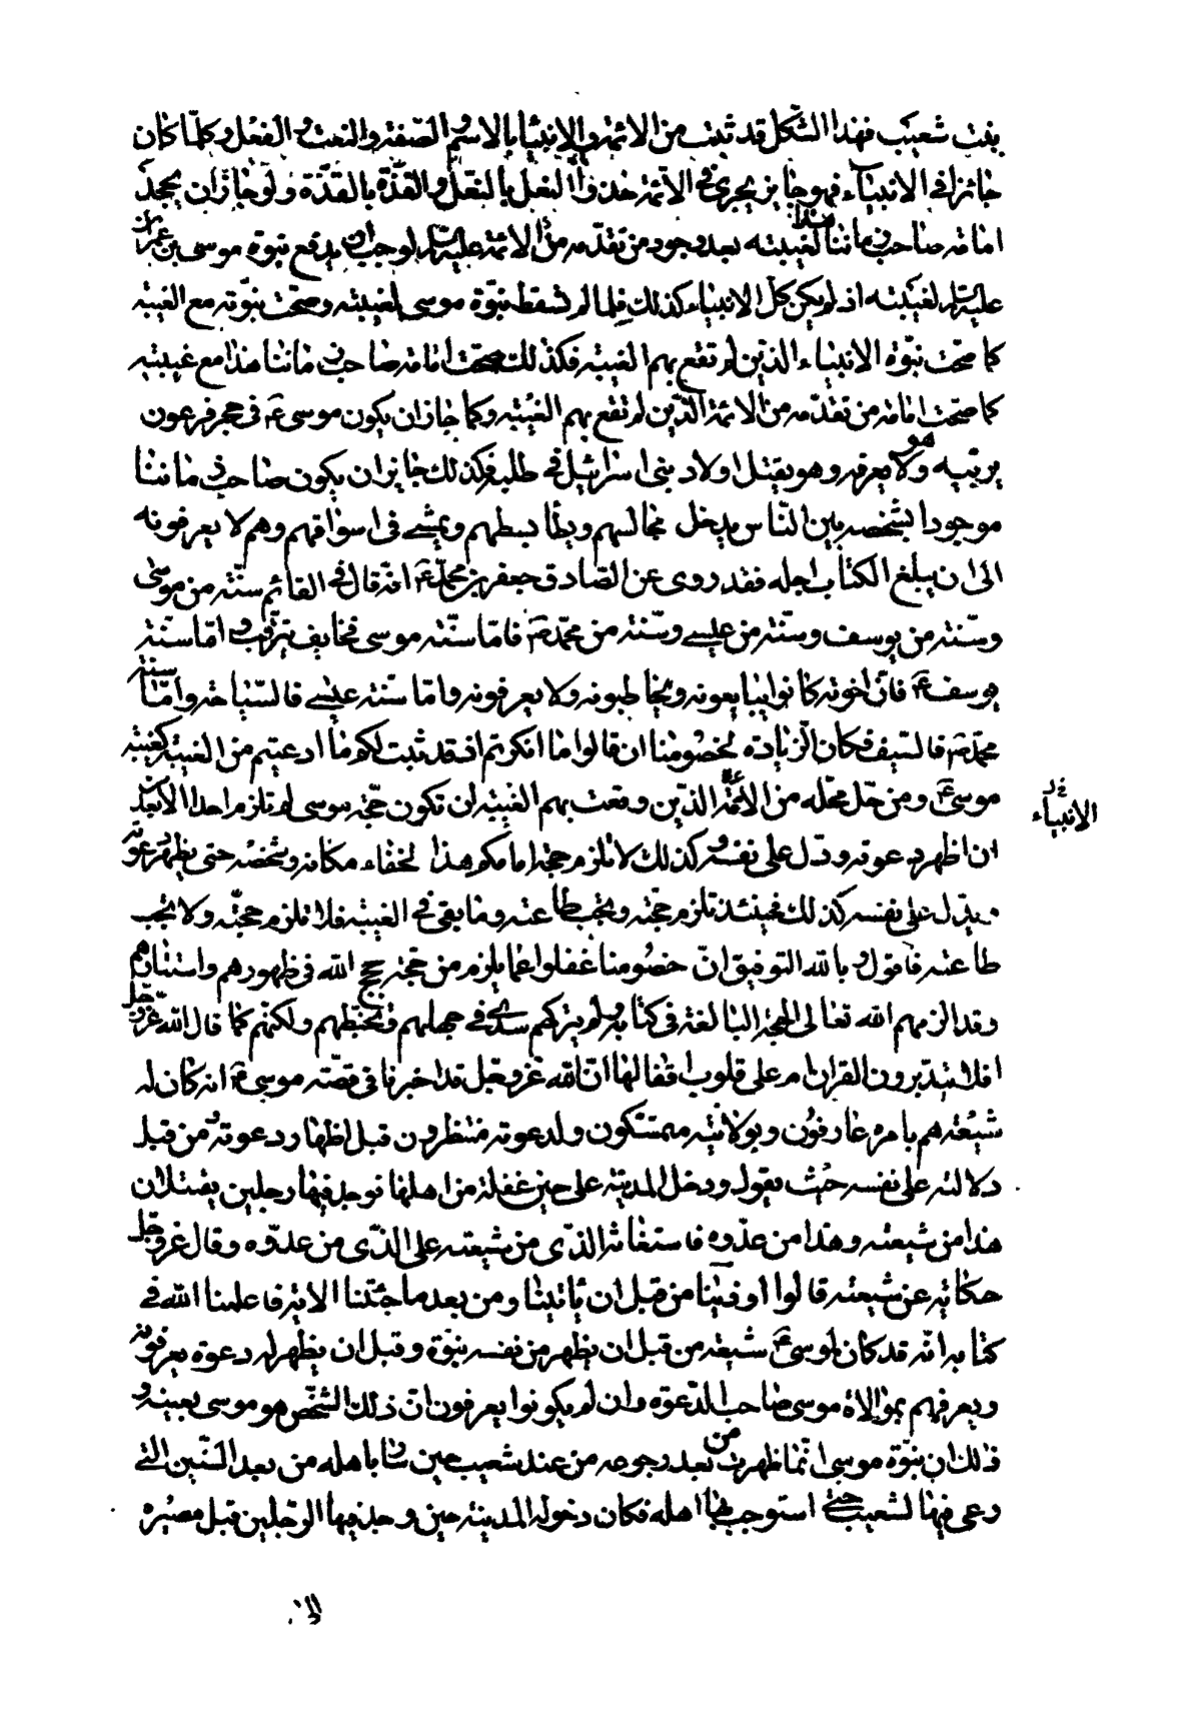 بنت شعيب فهذا الشكل قد ثبت من الائمة والانبياء بالاسم والصفة والنعت والفعل وكلما كان
جائزا في الانبياء فهو جايز يجرى في الائمة حذو النعل بالنعل والقذة بالقذة ولو جاز ان يجحد
امامة صاحب زماننا هذا لغيبته بعد وجود من تقدمه من الائمة عليهم السلام لوجب ان يدفع نبوة موسى بن عمران
عليه السلام لغيبته اذ لم يكن كل الانبياء كذلك فلما لم تسقط نبوة موسى لغيبته وصحت نبوته مع الغيبة
كما صحت نبوة الانبياء الذين لم تقع بهم الغيبة فكذلك صحت امامة صاحب زماننا هذا مع غيبته
كما صحت امامة من تقدمه من الائمة الذين لم تقع بهم الغيبة وكما جاز ان يكون موسى ع في حجر فرعون
يربيه وهو لا يعرفه وهو يقتل اولاد بنى اسرائيل في طلبه فكذلك جايز ان يكون صاحب زماننا
موجودا بشخصه بين الناس يدخل مجالسهم ويطأ بسطهم ويمشى في اسواقهم وهم لا يعرفونه
الى ان يبلغ الكتاب اجله فقد روى عن الصادق جعفر بن محمد ع انه قال في القائم سنة من موسى
وسنة من يوسف وسنة من عيسى وسنة من محمد ص فاما سنة موسى فخايف يترقب واما سنة
يوسف ع فان اخوته كانوا يبايعونه ويخاطبونه ولا يعرفونه واما سنة عيسى فالسياحة واما سنة
محمد ص فالسيف فكان الزيادة لخصومنا ان قالوا ما انكرتم اذ قد ثبت لكم ما ادعيتم من الغيبة كغيبة
موسى ع ومن حل محله من الائمة الذين وقعت بهم الغيبة ان تكون حجة موسى لم تلزم احدا الا بعد
الانبياء
ان اظهر دعوته ودل على نفسه وكذلك لا تلزم حجة امامكم هذا لخفاء مكانه وشخصه حتى يظهر دعوته
ويدل على نفسه كذلك فحينئذ تلزم حجته ويجب طاعته وما بقى في الغيبة فلا تلزم حجته ولا يجب
طاعته فاقول وبالله التوفيق ان خصومنا غفلوا عما يلزم من حجة حجج الله في ظهورهم واستتارهم
وقد الزمهم الله تعالى الحجة البالغة في كتابه ولم يتركهم سدى في جهلهم وتخبطهم ولكنهم كما قال الله عز وجل
افلا يتدبرون القران ام على قلوب اقفالها ان الله عز وجل قد اخبرنا في قصة موسى ع انه كان له
شيعة هم بامره عارفون وبولايته متمسكون ولدعوته منتظرون قبل اظهار دعوته ومن قبل
دلالته على نفسه حيث يقول ودخل المدينة على حين غفلة من اهلها فوجد فيها رجلين يقتتلان
هذا من شيعته وهذا من عدوه فاستغاثه الذى من شيعته على الذى من عدوه وقال عز وجل
حكاية عن شيعته قالوا اوذينا من قبل ان تاتينا ومن بعد ما جئتنا الاية فاعلمنا الله في
كتابه انه قد كان لموسى ع شيعة من قبل ان يظهر من نفسه نبوة وقبل ان يظهر له دعوة يعرفونه
ويعرفهم بموالاة موسى صاحب الدعوة وان لم يكونوا يعرفون ان ذلك الشخص هو موسى بعينه و
ذلك ان نبوة موسى انما ظهرت من بعد رجوعه من عند شعيب حين سار باهله من بعد السنين التى
رعى فيها لشعيب حتى استوجب بها اهله فكان دخوله المدينة حين وجد فيها الرجلين قبل مصيره